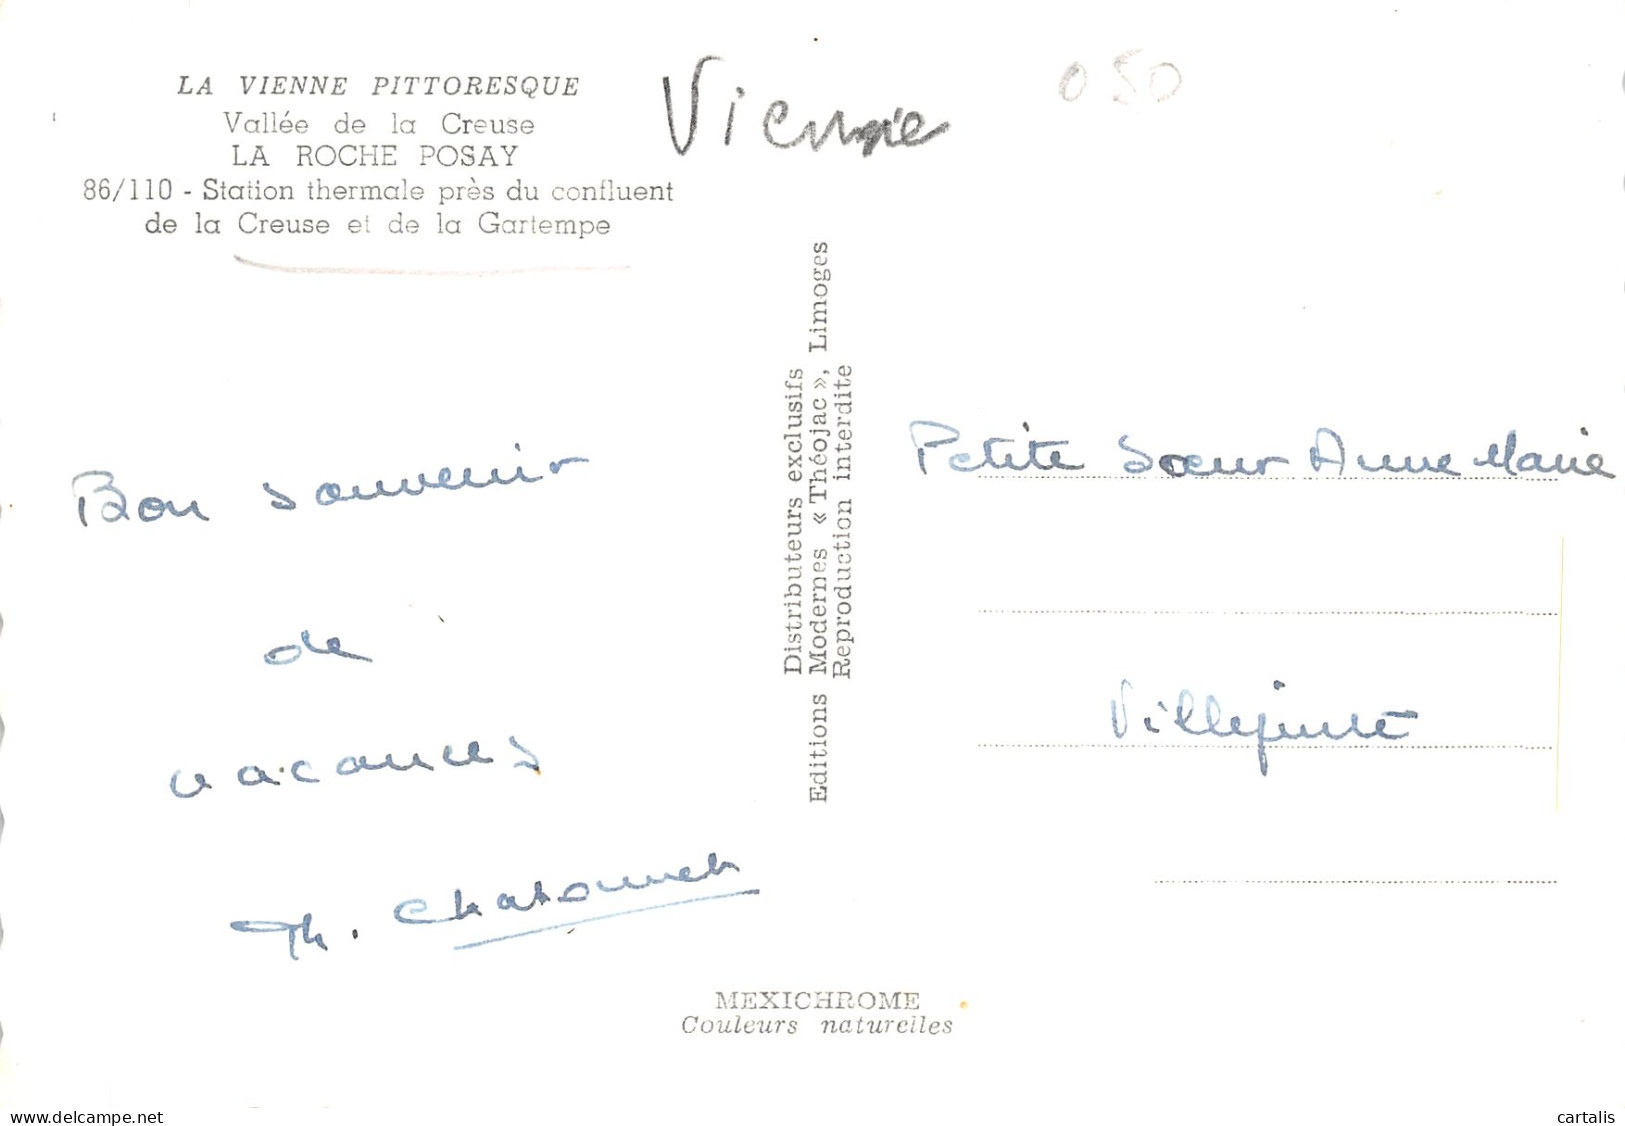 LA VIENNE PITTORESQUE
Vallée de la Creuse
LA ROCHE POSAY
86/110 - Station thermale près du confluent
de la Creuse et de la Gartempe
Vienne
050
Bon souvenir
de
vacances
Th.
Distributeurs exclusifs
Editions Modernes « Théojac », Limoges
Reproduction interdite
Petite Sœur Anne Marie
Villejuste
MEXICHROME
Couleurs naturelles
www.delcampe.net
cartalis